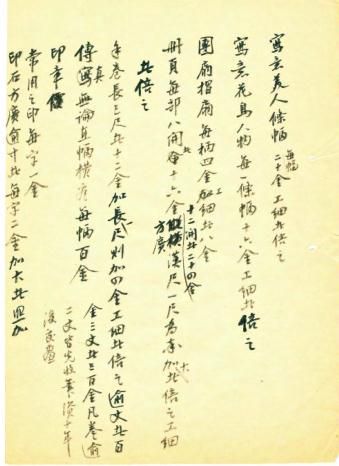 寫意美人條幅每幅二十金工細者倍之
寫意花鳥人物每一條幅十六金工細者倍之
團扇摺扇每柄四金工細者八金
冊頁每部八開者十六金十二開者二十四金縱橫方廣漢尺一尺為率加大者倍之工細
者倍之
手卷長三尺者十二金加長尺則加四金工細者倍之逾丈者百
金三丈者三百金凡卷逾
二丈皆先收筆資十年
後交畫
傳真無論直幅橫方每幅百金
印章
常用之印每字一金
印石方廣逾寸者每字二金加大者照加